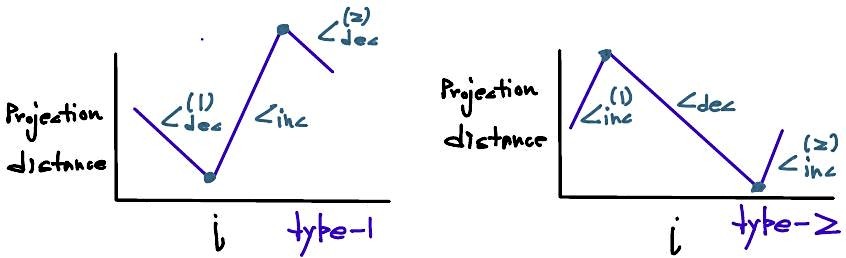 Projection
distance
<(1)dec
<inc
<(2)dec
i
type-1
Projection
distance
<(1)inc
<dec
<(2)inc
i
type-2